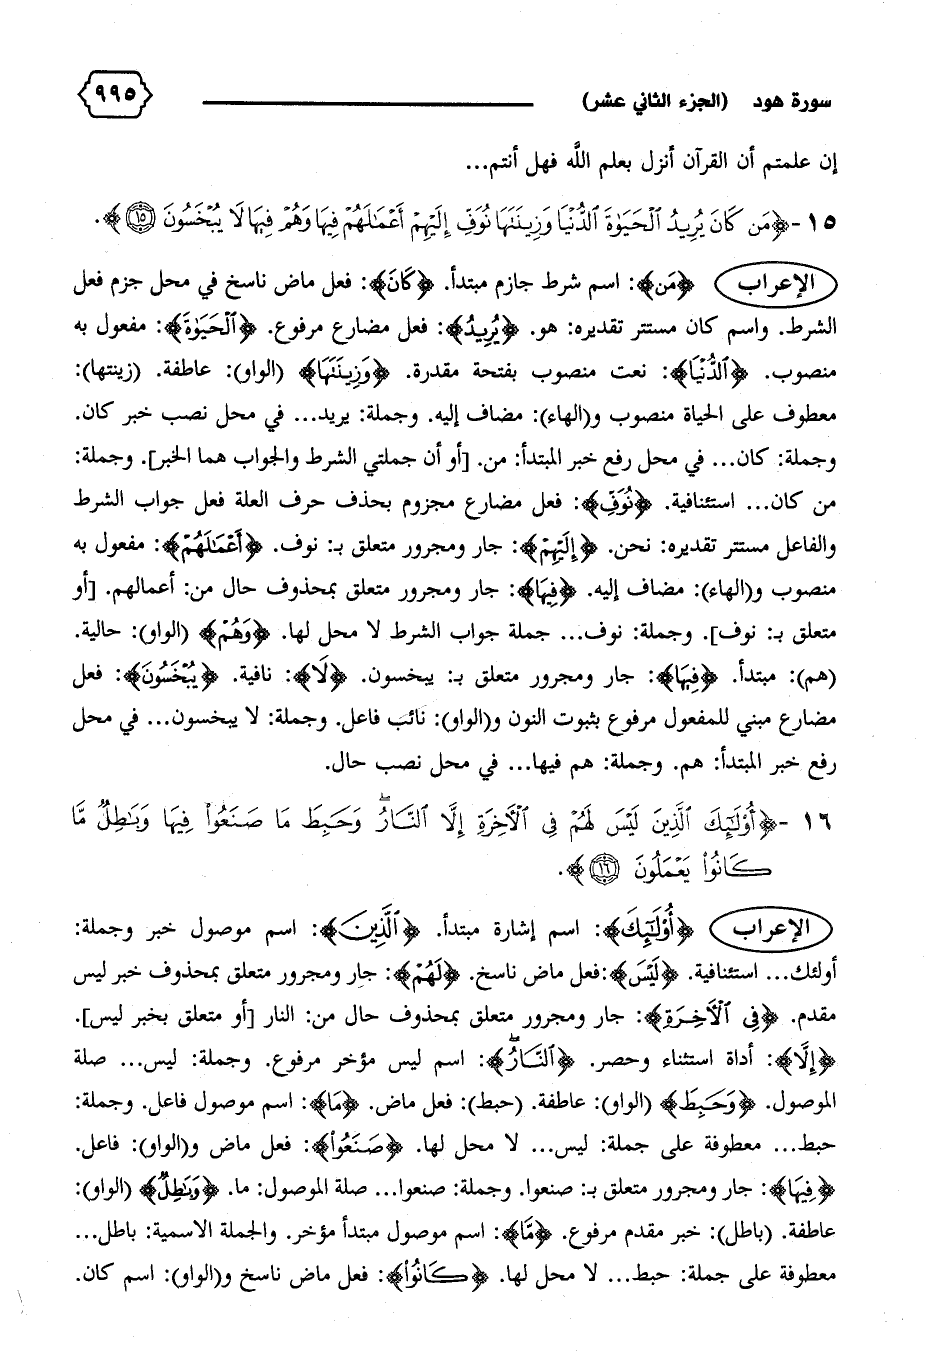 سورة هود (الجزء الثاني عشر) ٩٩٥
إن علمتم أن القرآن أنزل بعلم اللَّه فهل أنتم...
١٥ - ﴿مَن كَانَ يُرِيدُ ٱلْحَيَوٰةَ ٱلدُّنْيَا وَزِينَتَهَا نُوَفِّ إِلَيْهِمْ أَعْمَـٰلَهُمْ فِيهَا وَهُمْ فِيهَا لَا يُبْخَسُونَ ﴿١٥﴾﴾.
الإعراب ﴿مَن﴾: اسم شرط جازم مبتدأ. ﴿كَانَ﴾: فعل ماض ناسخ في محل جزم فعل
الشرط. واسم كان مستتر تقديره: هو. ﴿يُرِيدُ﴾: فعل مضارع مرفوع. ﴿ٱلْحَيَوٰةَ﴾: مفعول به
منصوب. ﴿ٱلدُّنْيَا﴾: نعت منصوب بفتحة مقدرة. ﴿وَزِينَتَهَا﴾ (الواو): عاطفة. (زينتها):
معطوف على الحياة منصوب و(الهاء): مضاف إليه. وجملة: يريد... في محل نصب خبر كان.
وجملة: كان... في محل رفع خبر المبتدأ: من. [أو أن جملتي الشرط والجواب هما الخبر]. وجملة:
من كان... استئنافية. ﴿نُوَفِّ﴾: فعل مضارع مجزوم بحذف حرف العلة فعل جواب الشرط
والفاعل مستتر تقديره: نحن. ﴿إِلَيْهِمْ﴾: جار ومجرور متعلق بـ: نوف. ﴿أَعْمَـٰلَهُمْ﴾: مفعول به
منصوب و(الهاء): مضاف إليه. ﴿فِيهَا﴾: جار ومجرور متعلق بمحذوف حال من: أعمالهم. [أو
متعلق بـ: نوف]. وجملة: نوف... جملة جواب الشرط لا محل لها. ﴿وَهُمْ﴾ (الواو): حالية.
(هم): مبتدأ. ﴿فِيهَا﴾: جار ومجرور متعلق بـ: يبخسون. ﴿لَا﴾: نافية. ﴿يُبْخَسُونَ﴾: فعل
مضارع مبني للمفعول مرفوع بثبوت النون و(الواو): نائب فاعل. وجملة: لا يبخسون... في محل
رفع خبر المبتدأ: هم. وجملة: هم فيها... في محل نصب حال.
١٦ - ﴿أُوْلَـٰٓئِكَ ٱلَّذِينَ لَيْسَ لَهُمْ فِى ٱلْـَٔاخِرَةِ إِلَّا ٱلنَّارُۖ وَحَبِطَ مَا صَنَعُواْ فِيهَا وَبَـٰطِلٌ مَّا
كَانُواْ يَعْمَلُونَ ﴿١٦﴾﴾.
الإعراب ﴿أُوْلَـٰٓئِكَ﴾: اسم إشارة مبتدأ. ﴿ٱلَّذِينَ﴾: اسم موصول خبر وجملة:
أولئك... استئنافية. ﴿لَيْسَ﴾:فعل ماض ناسخ. ﴿لَهُمْ﴾: جار ومجرور متعلق بمحذوف خبر ليس
مقدم. ﴿فِى ٱلْـَٔاخِرَةِ﴾: جار ومجرور متعلق بمحذوف حال من: النار [أو متعلق بخبر ليس].
﴿إِلَّا﴾: أداة استثناء وحصر. ﴿ٱلنَّارُۖ﴾: اسم ليس مؤخر مرفوع. وجملة: ليس... صلة
الموصول. ﴿وَحَبِطَ﴾ (الواو): عاطفة. (حبط): فعل ماض. ﴿مَا﴾: اسم موصول فاعل. وجملة:
حبط... معطوفة على جملة: ليس... لا محل لها. ﴿صَنَعُواْ﴾: فعل ماض و(الواو): فاعل.
﴿فِيهَا﴾: جار ومجرور متعلق بـ: صنعوا. وجملة: صنعوا... صلة الموصول: ما. ﴿وَبَـٰطِلٌ﴾ (الواو):
عاطفة. (باطل): خبر مقدم مرفوع. ﴿مَّا﴾: اسم موصول مبتدأ مؤخر. والجملة الاسمية: باطل...
معطوفة على جملة: حبط... لا محل لها. ﴿كَانُواْ﴾: فعل ماض ناسخ و(الواو): اسم كان.